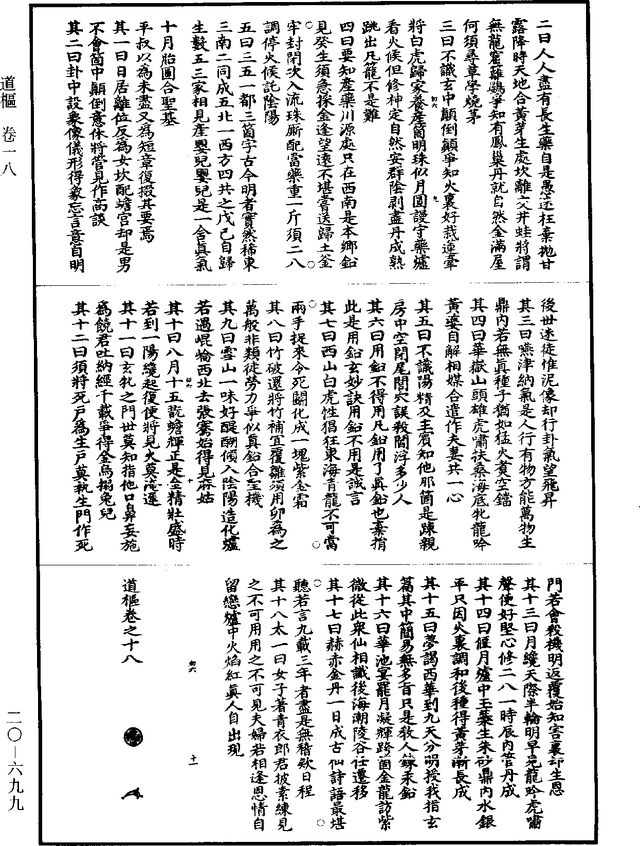 道樞 卷一八
二〇—六九九
二曰人人盡有長生藥自是愚迷枉棄拋甘
露降時天地合黃芽生處坎離交井蛙將謂
無龍窟籬鷃爭知有鳳巢丹就自然金滿屋
何須尋草學燒茅
三曰不識玄中顛倒顛爭知火裏好栽蓮牽
將白虎歸家養產箇明珠似月圓謾守藥爐
看火候但修神定自然安群陰剝盡丹成熟
跳出凡籠不是難
四曰要知產藥川源處只在西南是本鄉鉛
見癸生須急採金逢望遠不堪嘗送歸土釜
牢封閉次入流珠廝配當藥重一斤須二八
調停火候託陰陽
五曰三五一都三箇字古今明者實然稀東
三南二同成五北一西方四共之戊己自歸
生數五三家相見產嬰兒嬰兒是一含真氣
十月胎圓合聖基
平叔以為未盡又為短章復掇其要焉
其一曰日居離位反為女坎配蟾宮却是男
不會箇中顛倒意休將管見作高談
其二曰卦中設象像儀形得象忘言意自明
後世迷徒惟泥像却行卦氣望飛昇
其三曰嚥津納氣是人行有物方能萬物生
鼎內若無真種子猶如猛火煮空鐺
其四曰華嶽山頭雄虎嘯扶桑海底牝龍吟
黃婆自解相媒合遣作夫妻共一心
其五曰不識陽精及主賓知他那箇是踈親
房中空閉尾閭穴誤殺閻浮多少人
其六曰用鉛不得用凡鉛用了真鉛也棄捐
此是用鉛玄妙訣用鉛不用是誠言
其七曰西山白虎性猖狂東海青龍不可當
兩手捉來令死鬭化成一塊紫金霜
其八曰竹破還將竹補宜覆雞須用卵為之
萬般非類徒勞力爭似真鉛合聖機
其九曰雪山一味好醍醐傾入陰陽造化爐
若遇崐崘西北去張騫始得見麻姑
其十曰八月十五翫蟾輝正是金精壯盛時
若到一陽纔起復便將見火莫滻遲
其十一曰玄牝之門世莫知指他口鼻妄施
為饒君吐納經千載爭得金烏搦兔兒
其十二曰須將死戶為生戶莫執生門作死
門若會殺機明返覆始知害裏却生恩
其十三曰月纔天際半輪明早見龍吟虎嘯
聲便好堅心修二八一時辰內管丹成
其十四曰偃月爐中玉蘂生朱砂鼎內水銀
平只因火裏調和後種得黃芽漸長成
其十五曰夢謁西華到九天分明授我指玄
篇其中簡易無多言只是教人鍊汞鉛
其十六曰華池宴罷月凝輝跨箇金龍訪紫
微從此衆仙相識後海潮陵谷任遷移
其十七曰赫赤金丹一日成古仙詩語最堪
聽若言九載三年者盡是無稽欵日程
其十八太一曰女子著青衣郎君披素練見
之不可用用之不可見夫婦若相逢恩情自
留戀爐中火焰紅真人自出現
道樞卷之十八